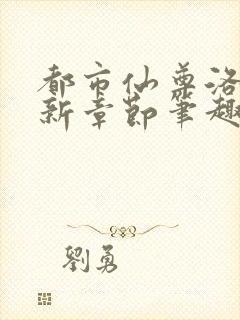 都市仙尊洛
新章节笔趣
劉勇